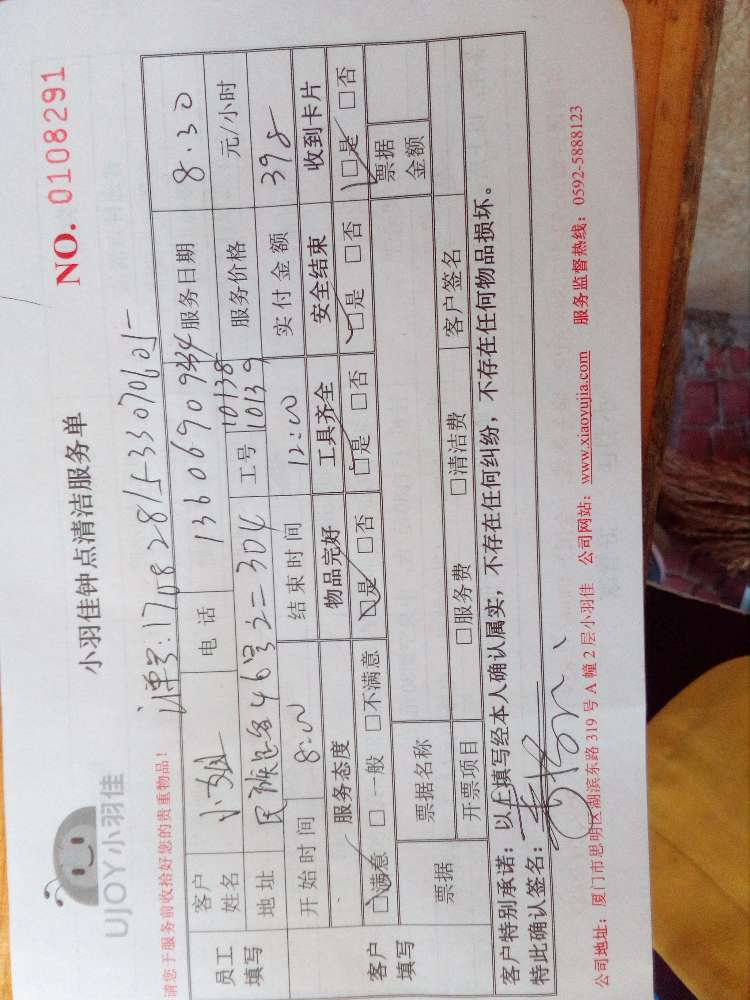 UJOY小羽佳
小羽佳钟点清洁服务单
NO. 0108291
请您于服务前收拾好您的贵重物品！
订单号:170828153307065
员工填写
客户姓名 小姐 电话 13606909 服务日期 8.30
地址 民族路46号之二304 工号 10138 10139 服务价格 元/小时
开始时间 8:00 结束时间 12:00 实付金额 398
客户填写
服务态度 物品完好 工具齐全 安全结束 收到卡片
□满意 □一般 □不满意 □是 □否 □是 □否 □是 □否 □是 □否
票据 票据名称 票据金额
开票项目 □服务费 □清洁费 客户签名
客户特别承诺：以上填写经本人确认属实，不存在任何纠纷，不存在任何物品损坏。
特此确认签名：
公司地址：厦门市思明区湖滨东路 319 号 A 幢 2 层小羽佳 公司网站：www.xiaoyujia.com 服务监督热线：0592-5888123